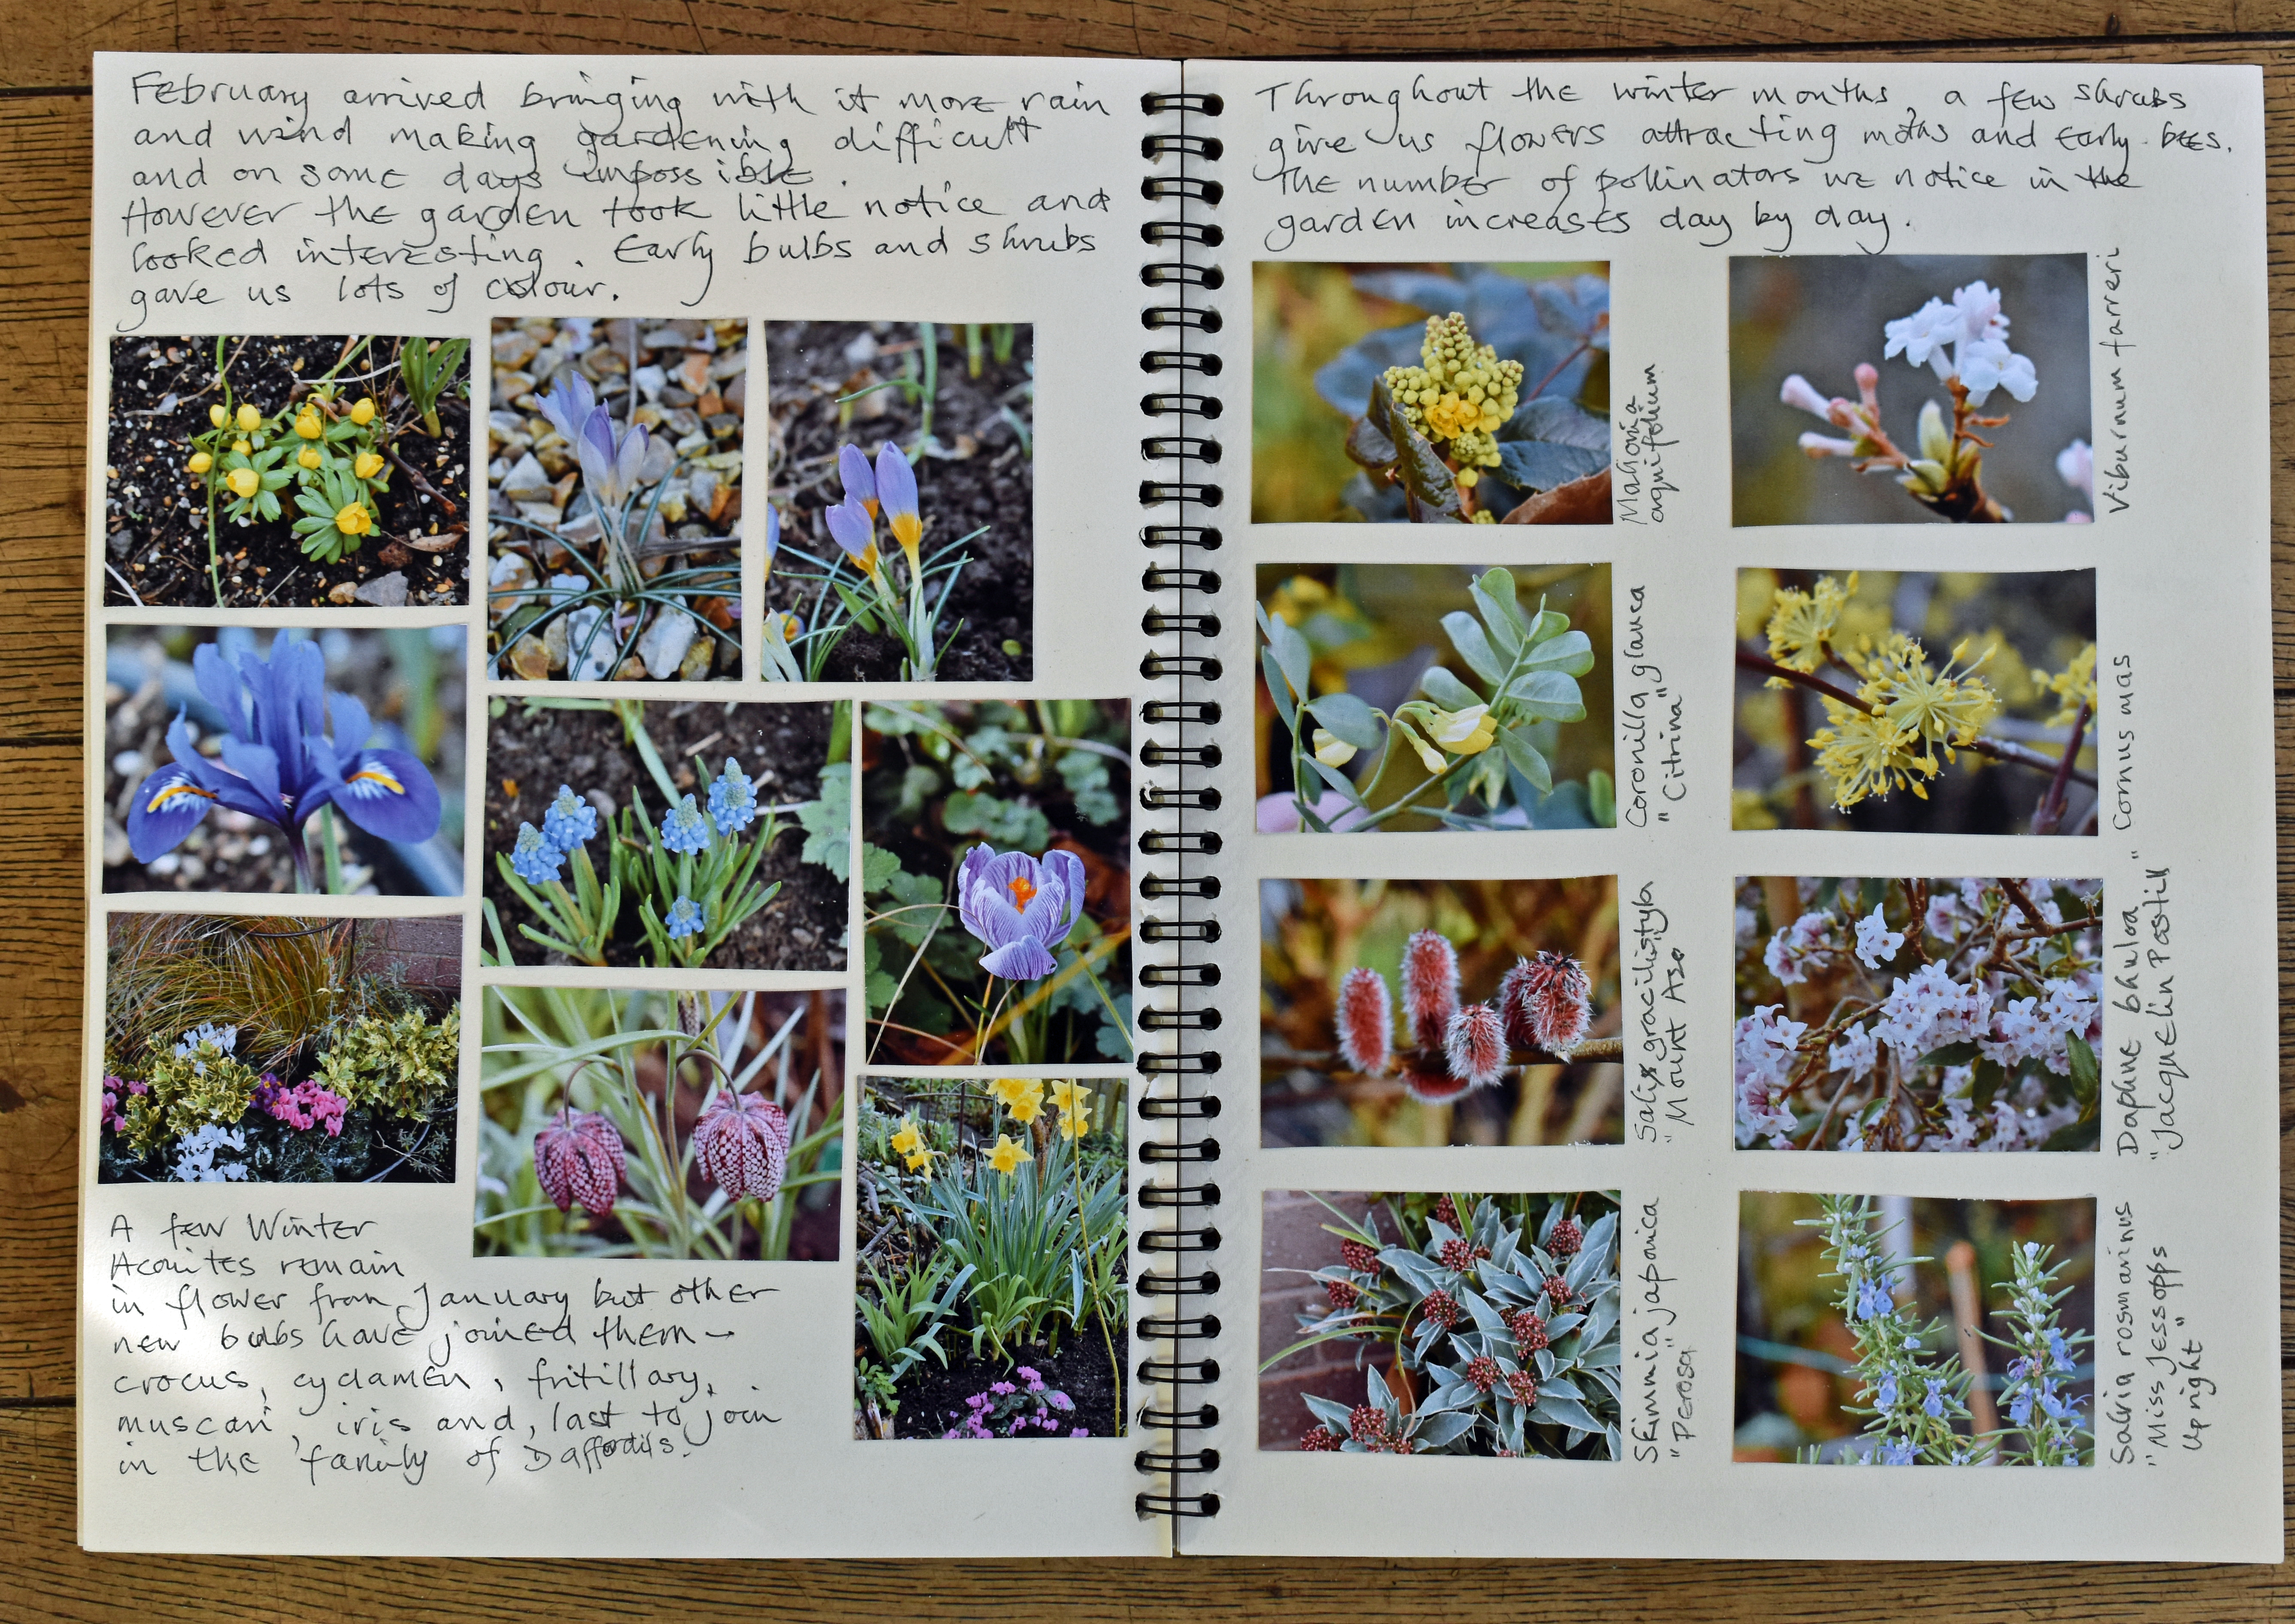 February arrived bringing with it more rain
and wind making gardening difficult
and on some days impossible.
However the garden took little notice and
looked interesting. Early bulbs and shrubs
gave us lots of colour.
A few Winter
Aconites remain
in flower from January but other
new bulbs have joined them –
crocus, cyclamen, fritillary,
muscari, iris and, last to join
in the family of Daffodils.
Throughout the winter months, a few shrubs
give us flowers attracting moths and early bees.
The number of pollinators we notice in the
garden increases day by day.
Mahonia
aquifolium
Viburnum farreri
Coronilla glauca
"Citrina"
Cornus mas
Salix gracilistyla
"Mount Aso"
Daphne bhuloa
"Jacquelin Postill"
Skimmia japonica
"Perosa"
Salvia rosmarinus
"Miss Jessopps
Upright"